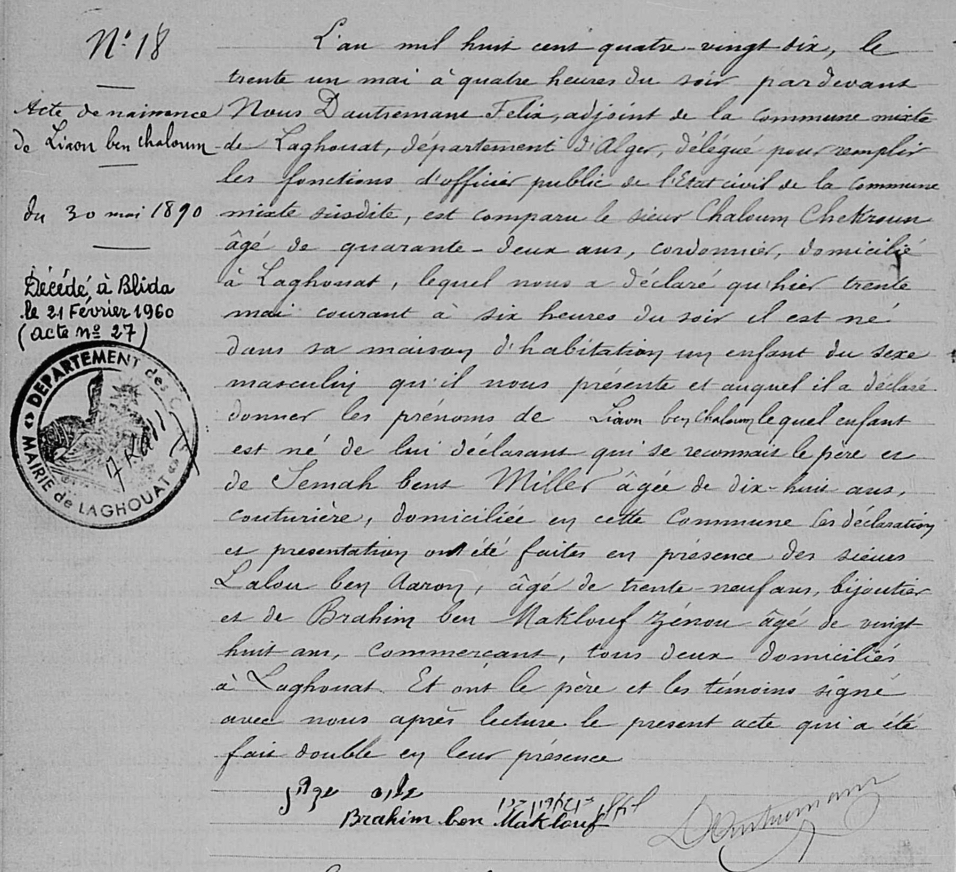 N° 18
Acte de naissance
de Liaou ben Chaloum
du 30 mai 1890
Décédé à Blida
le 21 Février 1960
(acte n° 27)
DEPARTEMENT des
MAIRIE de LAGHOUAT
L'an mil huit cent quatre-vingt six, le
trente un mai à quatre heures du soir par devant
Nous Dautremant Felix, adjoint de la commune mixte
de Laghouat, département d'Alger, délégué pour remplir
les fonctions d'officier public de l'Etat civil de la commune
mixte susdite, est comparu le sieur Chaloum Chekroun
âgé de quarante-deux ans, cordonnier, domicilié
à Laghouat, lequel nous a déclaré qu'hier trente
mai courant à six heures du soir il est né
dans sa maison d'habitation un enfant du sexe
masculin qu'il nous présente et auquel il a déclaré
donner les prénoms de Liaou ben Chaloum lequel enfant
est né de lui déclarant qui se reconnait le père et
de Semah bent Miller âgée de dix-huit ans,
couturière, domiciliée en cette Commune les déclaration
et presentation ont été faites en présence des sieurs
Lalou ben Aaron, âgé de trente-neuf ans, bijoutier
et de Brahim ben Maklouf Zénou âgé de vingt
huit ans, commerçant, tous deux domiciliés
à Laghouat. Et ont le père et les témoins signé
avec nous après lecture le present acte qui a été
fait double en leur présence
Brahim ben Maklouf